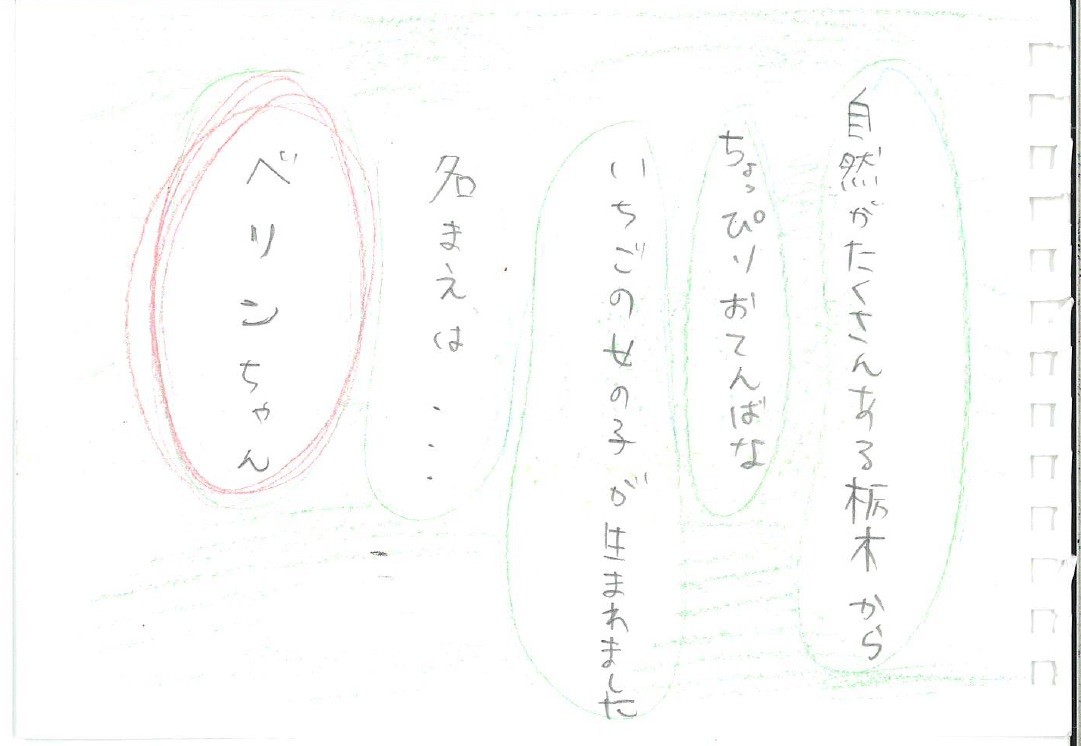 自然がたくさんある栃木から
ちょっぴりおてんばな
いちごの女の子が生まれました
名まえは...
ベリンちゃん